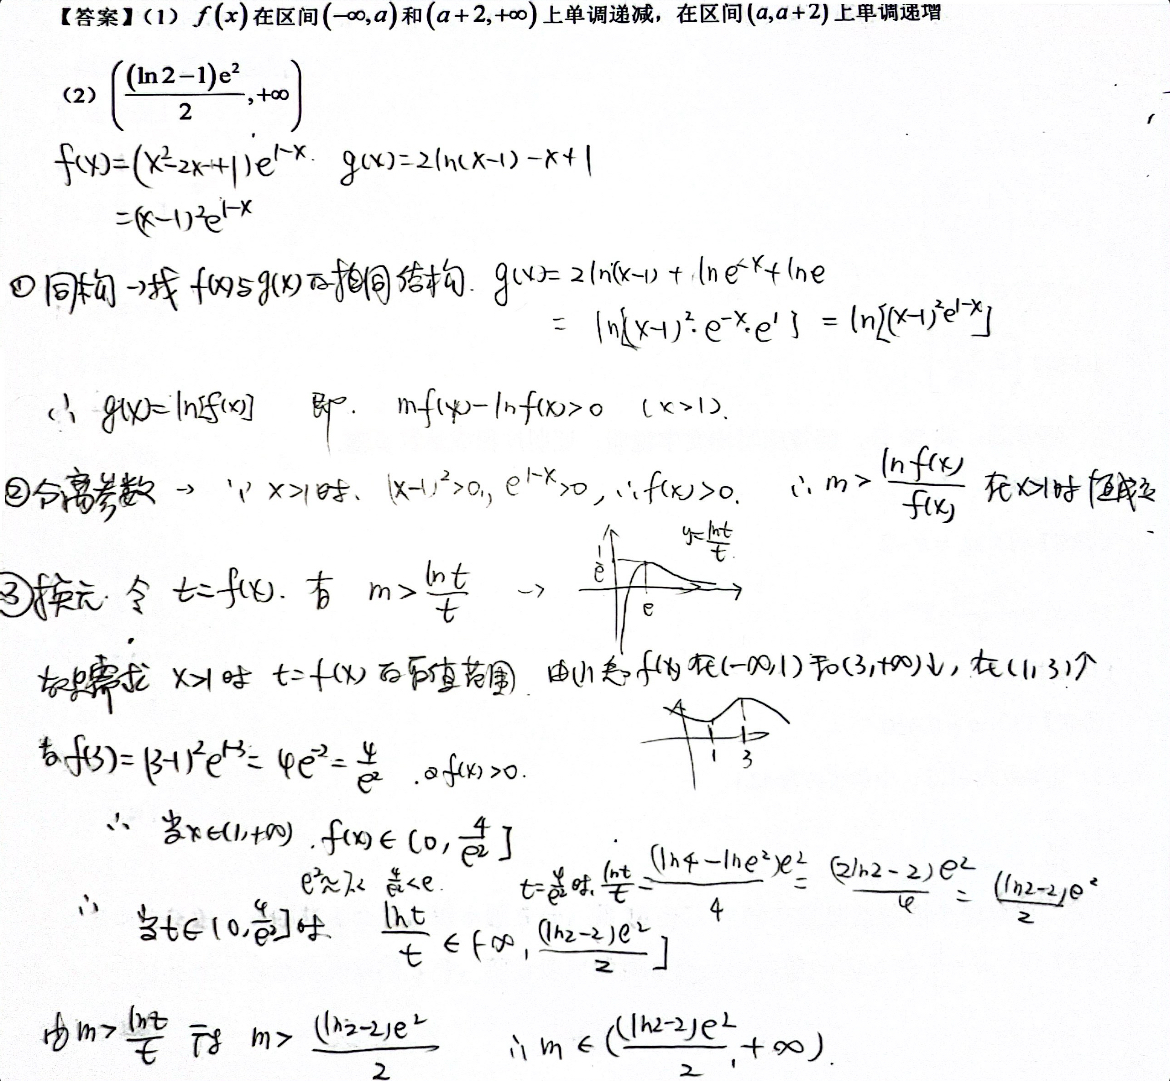 【答案】（1）f(x)在区间(−∞,a)和(a+2,+∞)上单调递减，在区间(a,a+2)上单调递增
（2）((ln2−1)e²/2,+∞)
f(x)=(x²-2x+1)e^{1-x}. g(x)=2ln(x-1)-x+1
=(x-1)²e^{1-x}
①同构→找 f(x)与g(x)的相同结构. g(x)=2ln(x-1)+lne^{-x}+lne
=ln[(x-1)²·e^{-x}·e^1]=ln[(x-1)²e^{1-x}]
∴ g(x)=ln[f(x)] 即. mf(x)-lnf(x)>0 (x>1).
②分离参数→ ∵x>1时、(x-1)²>0,, e^{1-x}>0,∴f(x)>0. ∴m>lnf(x)/f(x) 在x>1时恒成立
③换元. 令 t=f(x). 有 m>lnt/t → 1/e e y=lnt/t.
故只需求 x>1时 t=f(x)的值范围. 由(1)知f(x)在(-∞,1)和(3,+∞)↓,在(1,3)↑
1 3
有f(3)=(3-1)²e^{1-3}=4e^{-2}=4/e² .且f(x)>0.
∴ 当x∈(1,+∞).f(x)∈(0,4/e²]
e²≈7.2 4/e²<e. t=4/e²时.lnt/t=(ln4-lne²)e²/4=(2ln2-2)e²/4=(ln2-2)e²/2
∴ 当t∈(0,4/e²]时. lnt/t∈(-∞,(ln2-2)e²/2]
由m>lnt/t 可得 m>(ln2-2)e²/2 ∴m∈((ln2-2)e²/2,+∞).